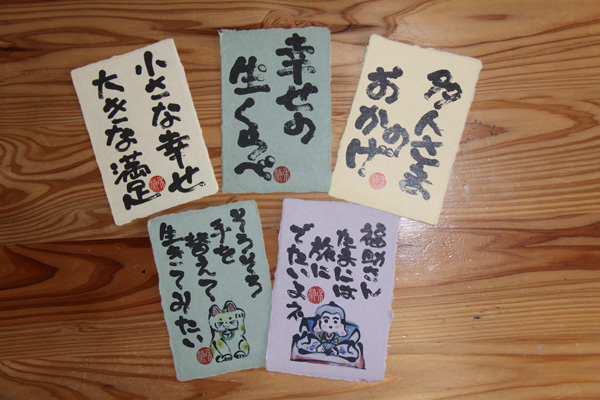 小さな幸せ
大きな満足
幸せの
生くらべ
多人さま
の
おかげ
そろそろ
手を
替えて
生きてみたい
福助さん
たまには
旅に
でたいよネ